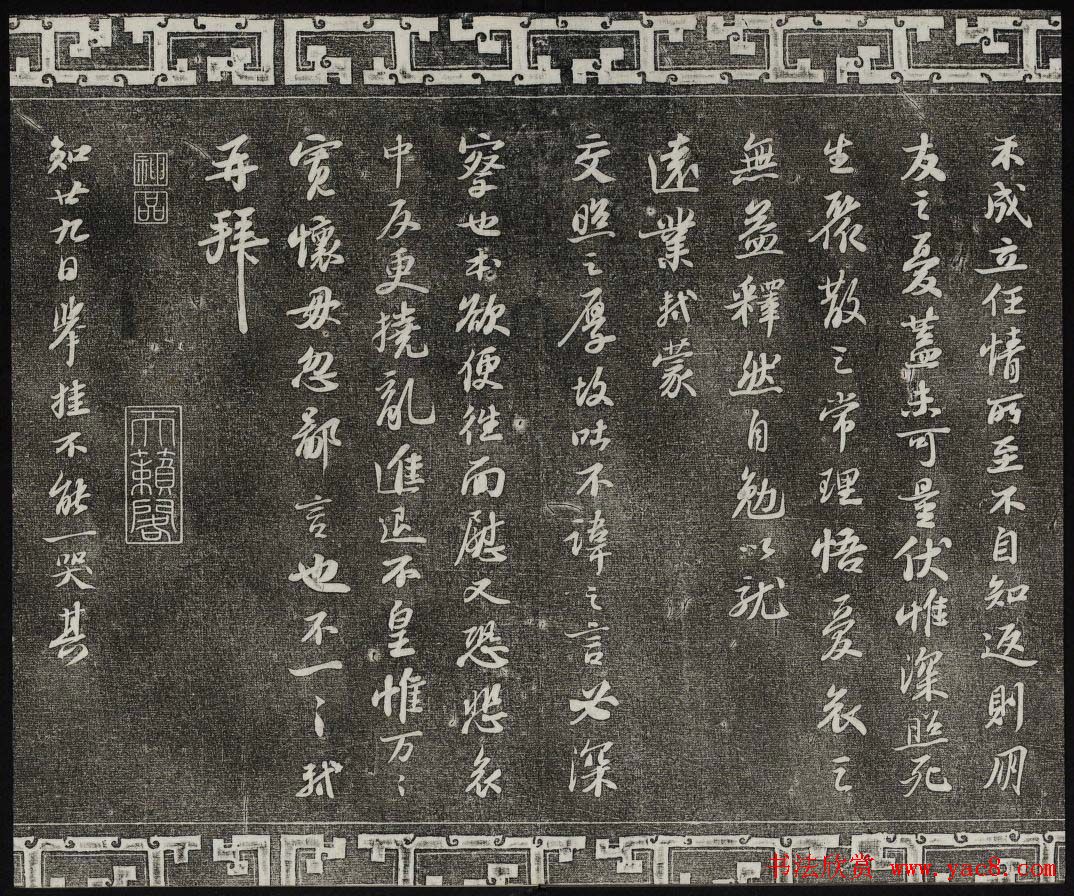 不成立任情所至不自知返則朋
友之憂蓋未可量伏惟深照死
生聚散之常理悟憂哀之
無益釋然自勉以就
遠業軾蒙
交照之厚故吐不諱之言必深
察也本欲便往面慰又恐悲哀
中反更撓亂進退不皇惟万〻
寬懷毋忽鄙言也不一〻軾
再拜
神品
天籟閣
知廿九日舉挂不能一哭其
书法欣赏 www.yac8.com